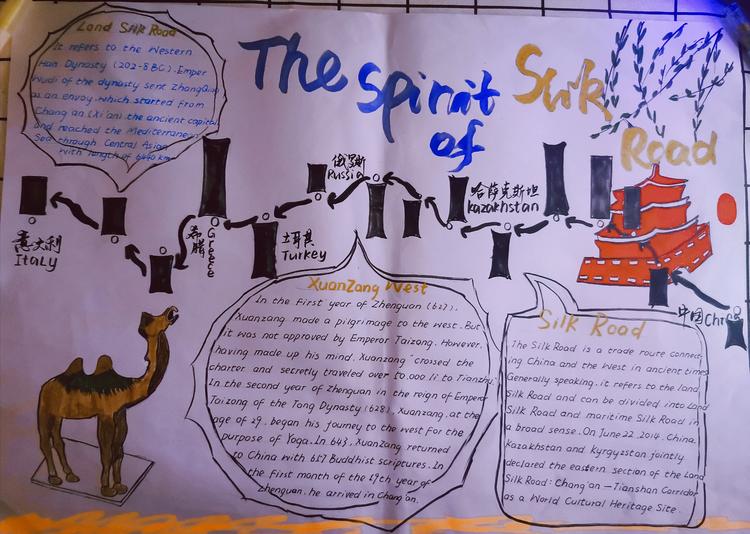 The Spirit of Silk Road
Land Silk Road
It refers to the Western
Han Dynasty (202-8BC). Emper
Wudi of the dynasty sent ZhangQian
as an envoy. which started from
Chang'an (Xi'an) the ancient capital
and reached the Mediterranean
Sea through Central Asian
with length of 6440 km
意大利
Italy
希腊
Greece
土耳其
Turkey
俄罗斯
Russia
哈萨克斯坦
Kazakhstan
中国China
XuanZang West
In the first year of Zhenguan (627).
Xuanzang made a pilgrimage to the west. But
it was not approved by Emperor Taizong. However,
having made up his mind, Xuanzang "crossed the
charter and secretly traveled over to.000 li to Tianzhu
In the second year of Zhenguan in the reign of Emperor
Taizong of the Tong Dynasty (628), Xuanzang, at the
age of 29, began his journey to the west for the
purpose of Yoga. In 643, XuanZang returned
to China with 657 Buddhist scriptures. In
the first month of the 19th year of
Zhenguan. he arrived in Chang'an.
Silk Road
The Silk Road is a trade route connect
ing China and the West in ancient times
Generally speaking. it refers to the land
Silk Road and can be divided into Land
Silk Road and maritime Silk Road in
a broad sense. On June 22, 2014, China.
Kazakhstan and Kyrgyzstan jointly
declared the eastern section of the Land
Silk Road: Chang'an — Tianshan Corridor
as a World Cultural Heritage Site.